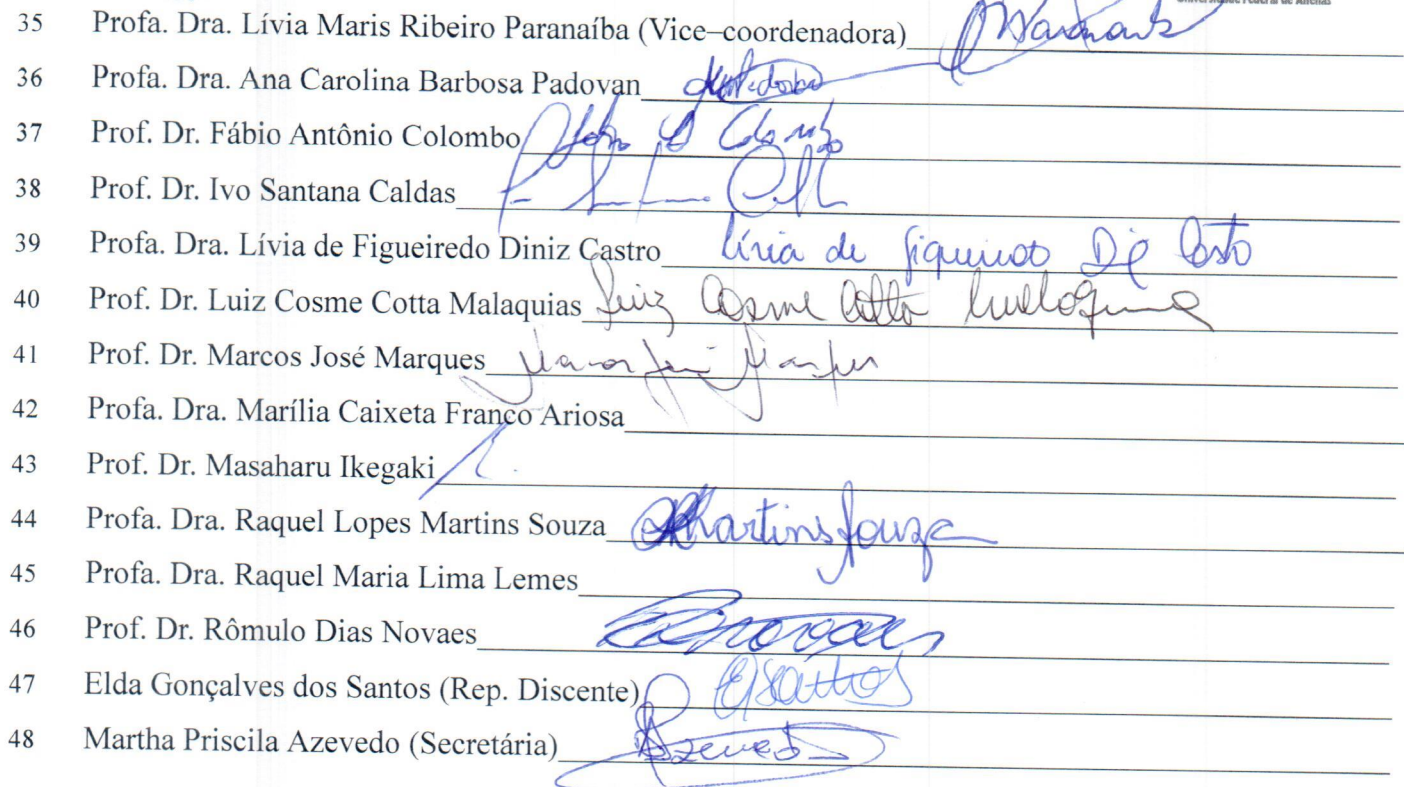 Universidade Federal de Alfenas
35 Profa. Dra. Lívia Maris Ribeiro Paranaíba (Vice–coordenadora)
36 Profa. Dra. Ana Carolina Barbosa Padovan
37 Prof. Dr. Fábio Antônio Colombo
38 Prof. Dr. Ivo Santana Caldas
39 Profa. Dra. Lívia de Figueiredo Diniz Castro Lívia de
40 Prof. Dr. Luiz Cosme Cotta Malaquias Luiz Cosme Cotta
41 Prof. Dr. Marcos José Marques
42 Profa. Dra. Marília Caixeta Franco Ariosa
43 Prof. Dr. Masaharu Ikegaki
44 Profa. Dra. Raquel Lopes Martins Souza RMartinsSouza
45 Profa. Dra. Raquel Maria Lima Lemes
46 Prof. Dr. Rômulo Dias Novaes
47 Elda Gonçalves dos Santos (Rep. Discente) EGSantos
48 Martha Priscila Azevedo (Secretária) Azevedo